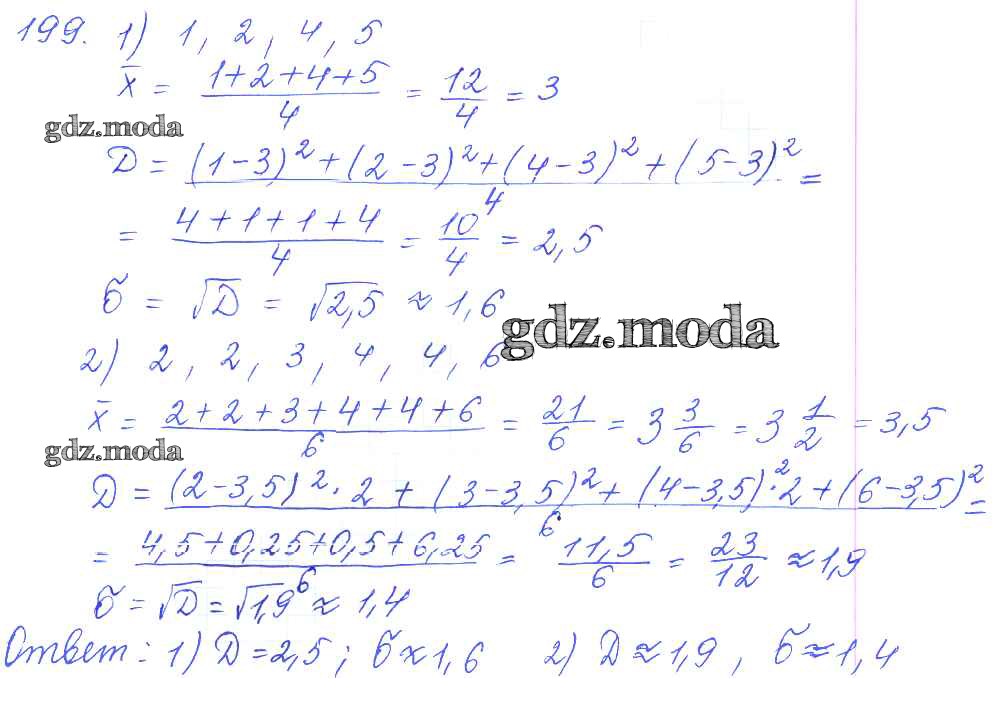 199. 1) 1, 2, 4, 5
x̄ = (1+2+4+5)/4 = 12/4 = 3
gdz.moda
Д = ((1-3)² + (2-3)² + (4-3)² + (5-3)²)/4 =
= (4+1+1+4)/4 = 10/4 = 2,5
б = √Д = √2,5 ≈ 1,6
gdz.moda
2) 2, 2, 3, 4, 4, 6
x̄ = (2+2+3+4+4+6)/6 = 21/6 = 3 3/6 = 3 1/2 = 3,5
gdz.moda
Д = ((2-3,5)²·2 + (3-3,5)² + (4-3,5)²·2 + (6-3,5)²)/6 =
= (4,5+0,25+0,5+6,25)/6 = 11,5/6 = 23/12 ≈ 1,9
б = √Д = √1,9 ≈ 1,4
Ответ: 1) Д = 2,5; б ≈ 1,6 2) Д ≈ 1,9, б ≈ 1,4